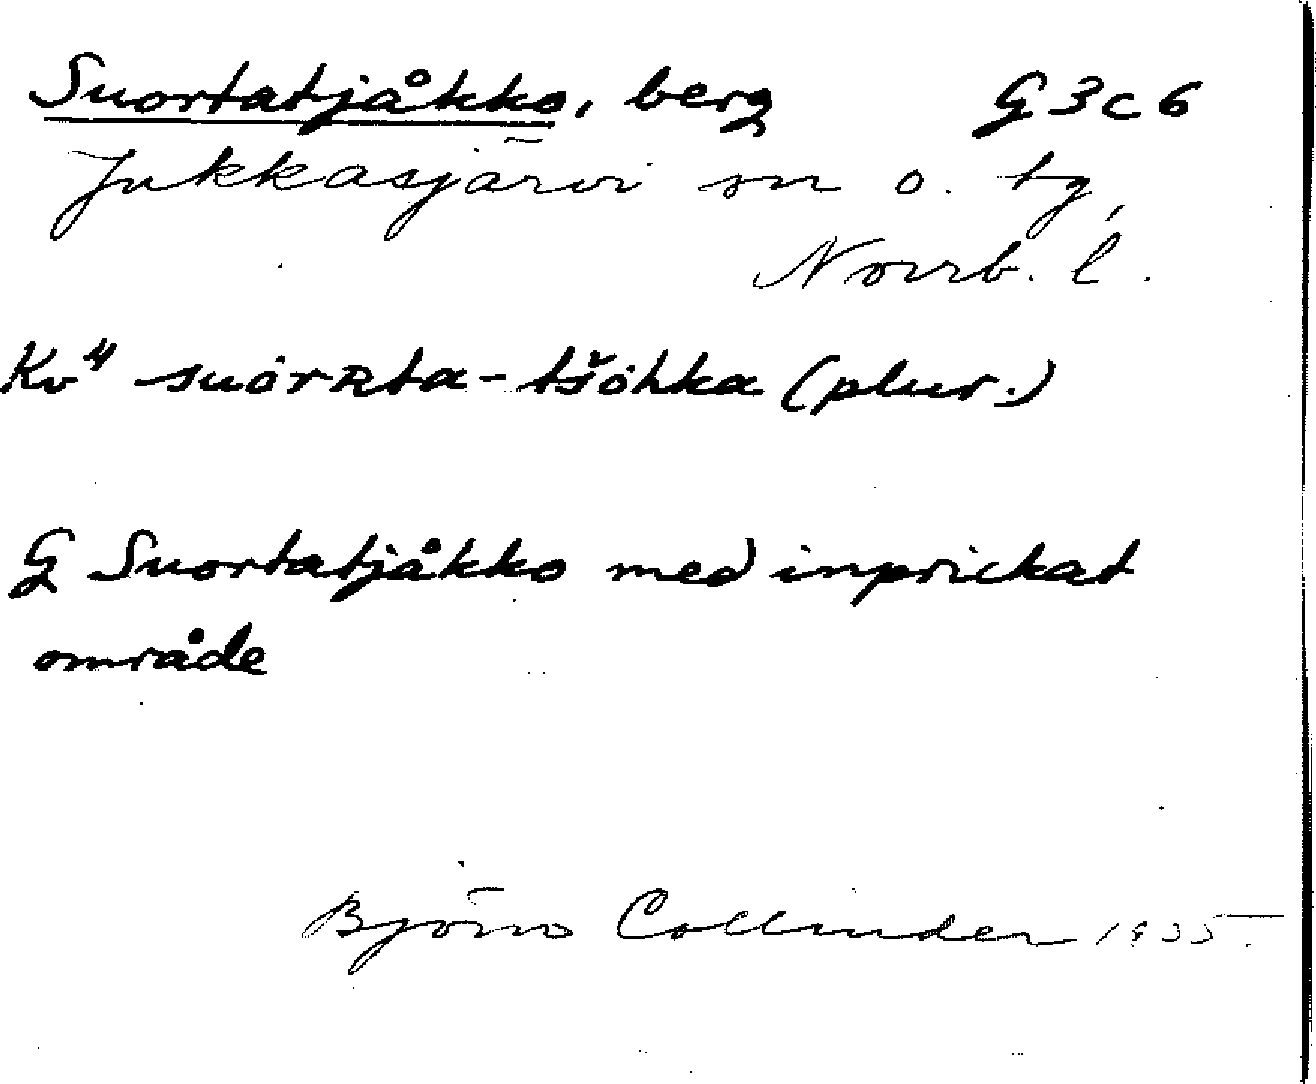 Suortatjåkko, berg G 3 c 6
Jukkasjärvi sn o. tg,
Norrb. l.
Kv⁴⁾ suȯrRta-tšȯhka (plur.)
G Suortatjåkko med inprickat
område
Björn Collinder 1935.